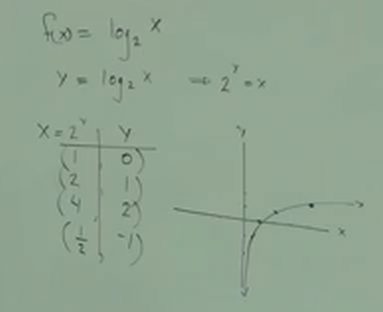 f(x) = log₂ x
y = log₂ x ⇒ 2^y = x
x = 2^y | y
(1 | 0)
(2 | 1)
(4 | 2)
(1/2 | -1)
y
x